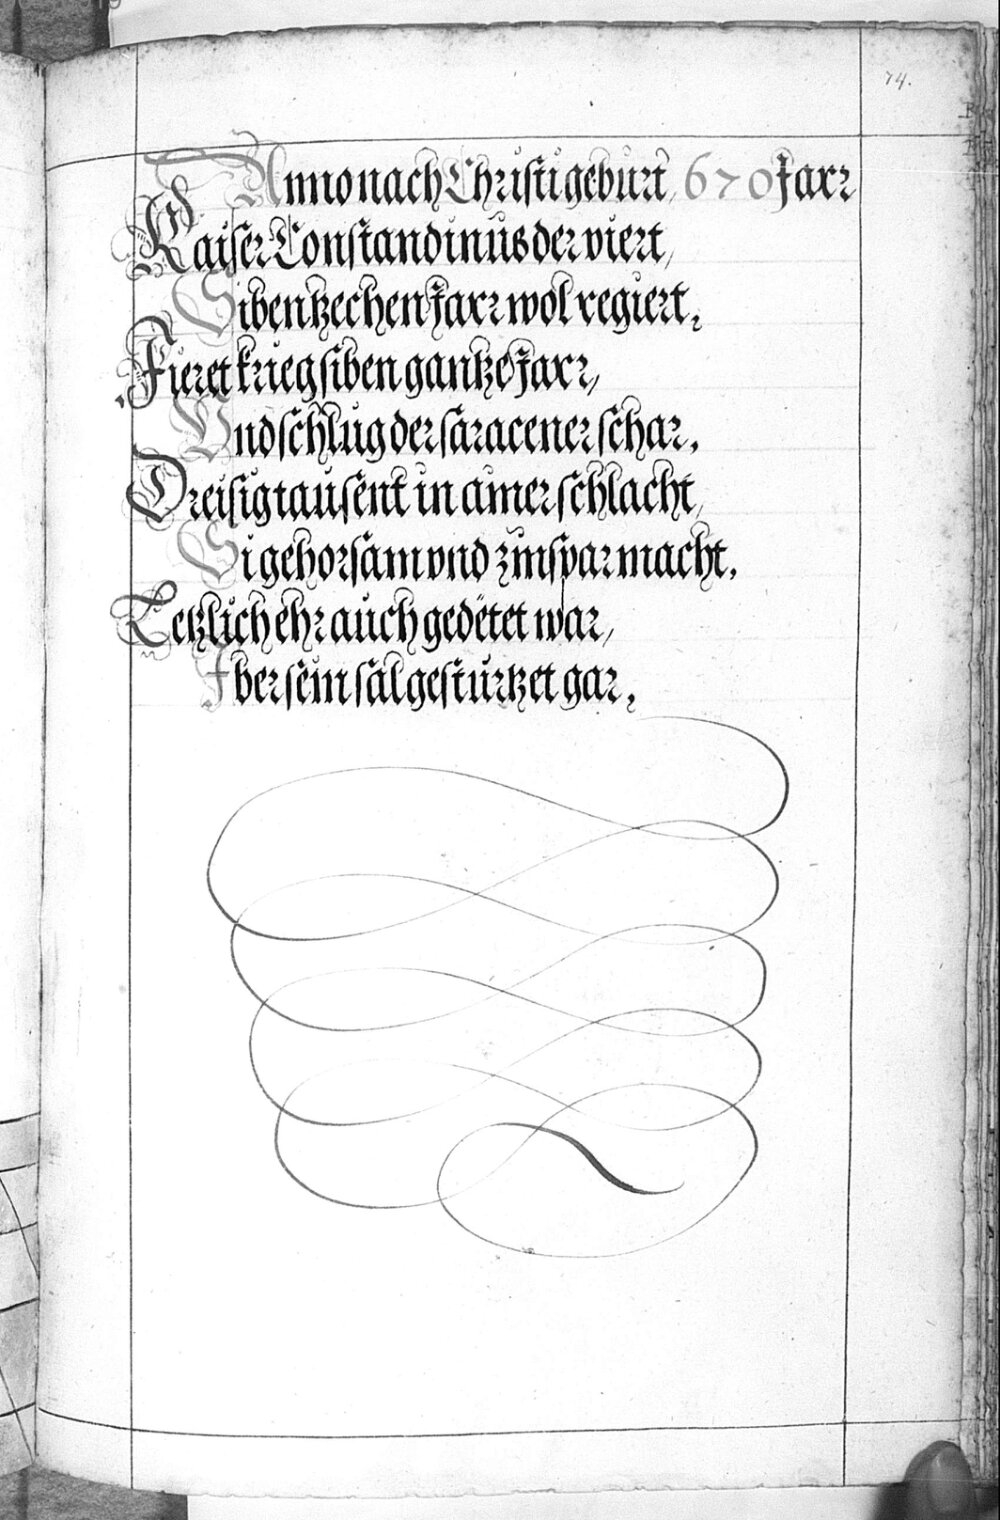 74.
Anno nach Christi geburt, 670 Jarr
Kaiser Constandinus der viert,
Sibentzechen Jarr wol regiert,
Fieret krieg siben gantze Jarr,
Vnd schlug der saracener schar,
Dreisig tausent in ainer schlacht,
Si gehorsam vnd zinspar macht,
Letzlich ehr auch gedetet war,
Iber sein sal gesturtzet gar,